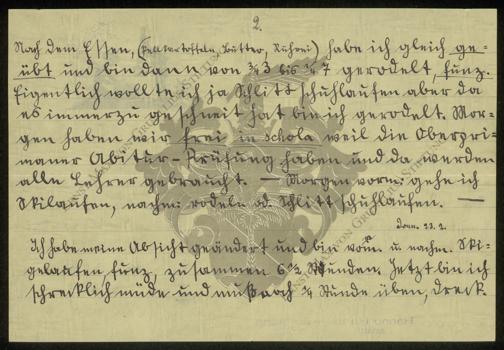 2.
Nach dem Essen, (Pellkartoffeln, Butter, Rührei) habe ich gleich ge-
übt und bin dann von ¾3 bis ¾7 gerodelt, funz.
Eigentlich wollte ich ja Schlittschuhlaufen aber da
es immerzu geschneit hat bin ich gerodelt. Mor-
gen haben wir frei in schola weil die Oberpri-
maner Abitur-Prüfung haben und da werden
alle Lehrer gebraucht. — Morgen vorm: gehe ich
Skilaufen, nachm: rodeln od. Schlittschuhlaufen. —
Donn. 23. 2.
Ich habe meine Absicht geändert und bin vorm. u. nachm. Ski-
gelaufen funz, zusammen 6½ Stunden. Jetzt bin ich
schrecklich müde und muß noch Stunde üben, Dreck.